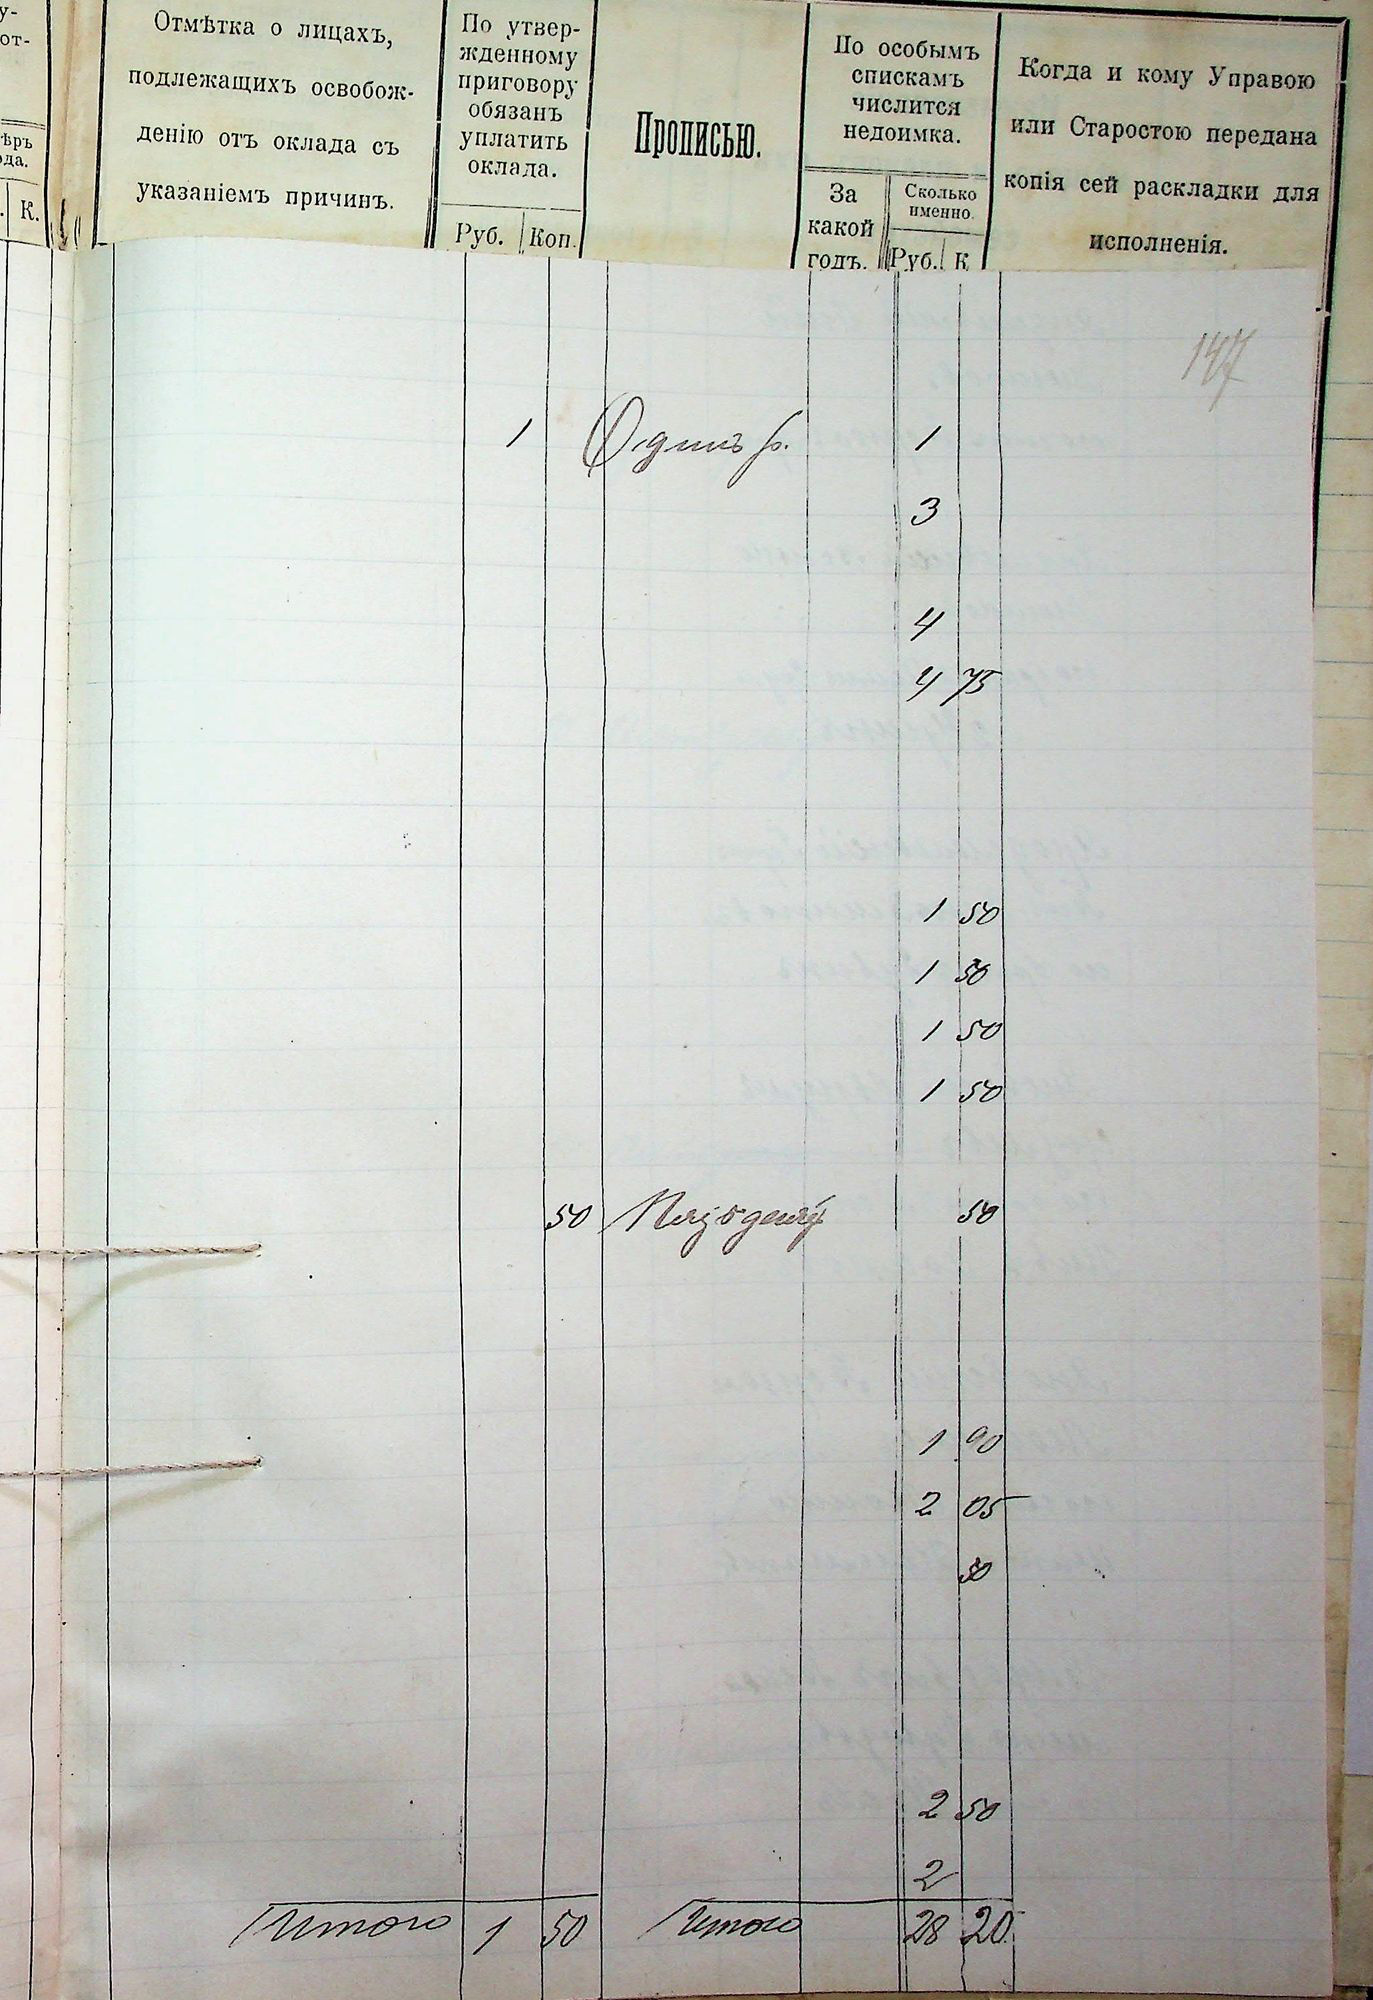 у-
от-
ѣръ
ода.
К.
Отмѣтка о лицахъ,
подлежащихъ освобож-
денію отъ оклада съ
указаніемъ причинъ.
По утвер-
жденному
приговору
обязанъ
уплатить
оклада.
Руб. Коп.
Прописью.
По особымъ
спискамъ
числится
недоимка.
За
какой
годъ.
Сколько
именно.
Руб. К
Когда и кому Управою
или Старостою передана
копія сей раскладки для
исполненія.
147
1 Одинъ р. 1
3
4
4 75
1 50
1 50
1 50
1 50
50 50
1 90
2 05
50
2 50
2
Итого 1 50 Итого 28 20